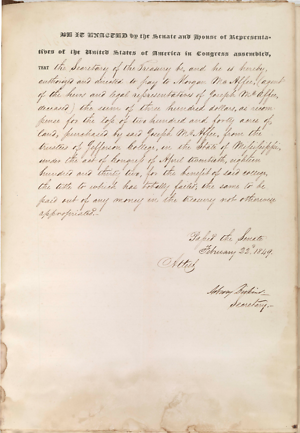 BE IT ENACTED by the Senate and House of Representa-
tives of the United States of America in Congress assembled,
THAT the Secretary of the Treasury be, and he is hereby,
authorized and directed to pay to Morgan McAfee, (agent
of the heirs and legal representatives of Joseph McAfee,
deceased) the sum of three hundred dollars, as recom
pense for the loss of two hundred and forty acres of
land, purchased by said Joseph McAfee, from the
trustees of Jefferson College, in the State of Mississippi,
under the act of Congress of April twentieth, eighteen
hundred and thirty two, for the benefit of said college,
the title to which has totally failed; the same to be
paid out of any money in the treasury not otherwise
appropriated.
Passed the Senate
February 22d 1849.
Attest
Asbury Dickins
Secretary.